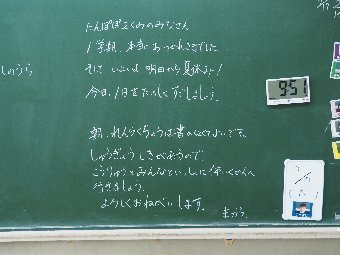 たんぽぽ2くみのみなさん
1学期、本当におつかれさまでした
そして、いよいよ明日から夏休み!
今日、1日をたのしくすごしましょう。
9:51
しのうら
朝、れんらくちょうは書かなくてよいです。
しゅうぎょうしきがあるので
こうりゅうとみんなといっしょに体いくかんへ
行きましょう。
よろしくおねがいします。